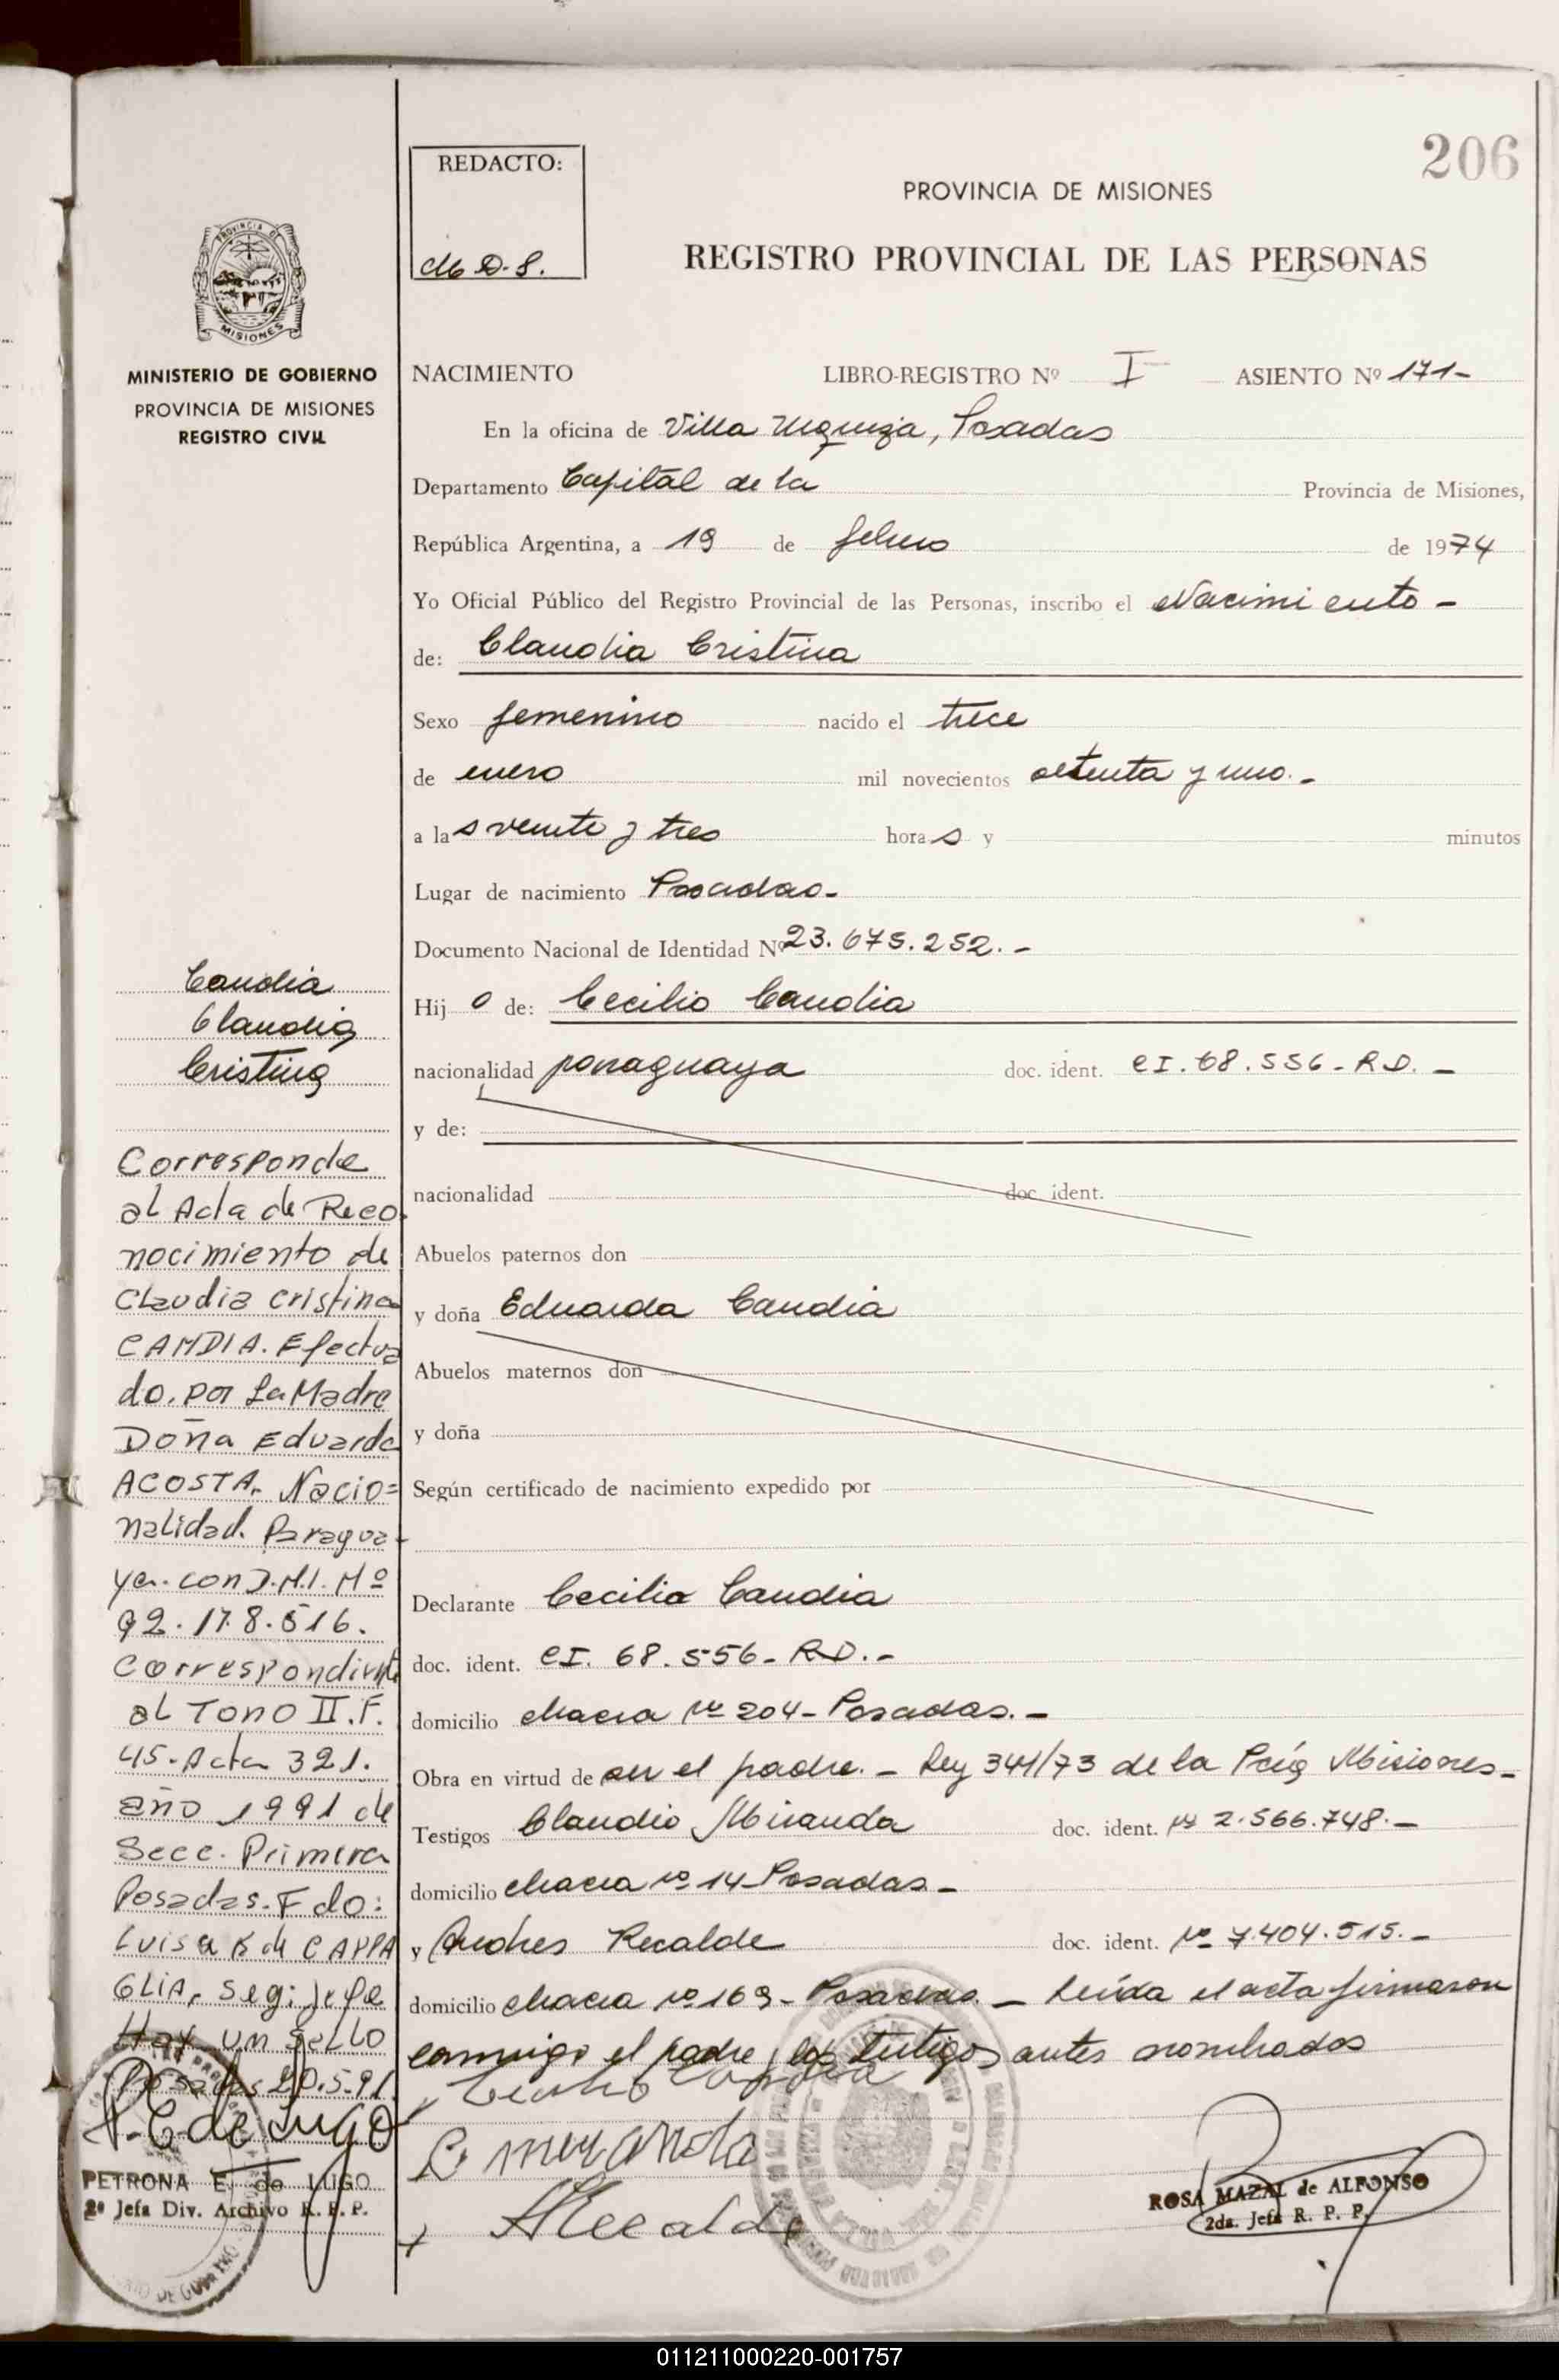 206
REDACTO:
M D. S.
PROVINCIA DE MISIONES
REGISTRO PROVINCIAL DE LAS PERSONAS
PROVINCIA DE
MISIONES
MINISTERIO DE GOBIERNO
PROVINCIA DE MISIONES
REGISTRO CIVIL
NACIMIENTO LIBRO-REGISTRO Nº I ASIENTO Nº 171-
En la oficina de Villa Urquiza, Posadas
Departamento Capital de la Provincia de Misiones,
República Argentina, a 19 de febrero de 1974
Yo Oficial Público del Registro Provincial de las Personas, inscribo el Nacimiento -
de: Claudia Cristina
Sexo femenino nacido el trece
de enero mil novecientos setenta y uno.-
a las veinte y tres horas y minutos
Lugar de nacimiento Posadas-
Documento Nacional de Identidad Nº 23.675.252.-
Hijo de: Cecilio Candia
nacionalidad paraguaya doc. ident. CI. 68.556-R.D. -
y de:
nacionalidad doc. ident.
Abuelos paternos don
y doña Eduarda Candia
Abuelos maternos don
y doña
Según certificado de nacimiento expedido por
Declarante Cecilio Candia
doc. ident. CI. 68.556- R.D.-
domicilio chacra nº 204- Posadas.-
Obra en virtud de ser el padre.- Ley 341/73 de la Pcia Misiones-
Testigos Claudio Miranda doc. ident. Nº 2.566.748.-
domicilio chacra nº 14 Posadas-
y Andres Recalde doc. ident. Nº 7.404.515.-
domicilio chacra nº 169- Posadas.- Leída el acta firmaron
conmigo el padre y los testigos antes nombrados
C. miranda
A Recalde
ROSA MAZAL de ALFONSO
2da. Jefa R. P. P.
Candia
Claudia
Cristina
Corresponde
al Acta de Reco
nocimiento de
Claudia cristina
CANDIA. Efectua
do. por La Madre
Doña Eduarda
ACOSTA. Nacio=
nalidad. Paragua-
ya. con D.N.I. Nº
92.178.516.
Correspondiente
al Tomo II.F.
45-Acta 321.
año 1991 de
Secc. Primera
Posadas. Fdo:
Luisa B de CAPPA
GLIA, Seg: jefe
Hay un sello
Posadas 20.5.91
P. E de Lugo
PETRONA E. de LUGO
2ª Jefa Div. Archivo R. P. P.
011211000220-001757